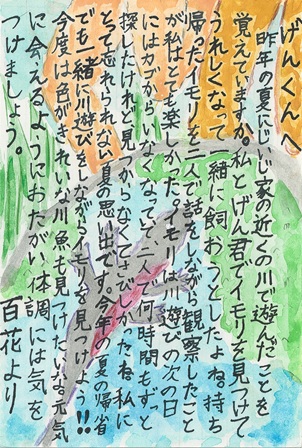 げんくんへ
昨年の夏にじいじ家の近くの川で遊んだことを
覚えていますか。私とげん君でイモリを見つけて
うれしくなって一緒に飼おうとしたよね。持ち
帰ったイモリを二人で話をしながら観察したこと
が私はとても楽しかった。イモリは川遊びの次の日
にはカゴからいなくなってて、二人で何時間もずっと
探したけれど見つからなくてさびしかったね。私に
とって忘れられない夏の思い出です。今年の夏の帰省
でも一緒に川遊びをしながらイモリを見つけよう!!
今度は色がきれいな川魚も見つけたいな。元気
に会えるようにおたがい体調には気を
つけましょう。 百花より